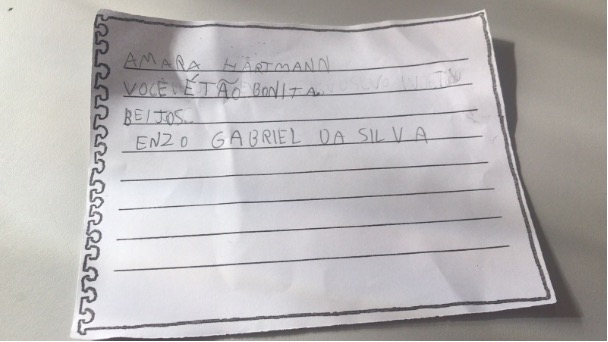 AMARA HARTMANN
VOCÊ É TÃO BONITA
BEIJOS
ENZO GABRIEL DA SILVA